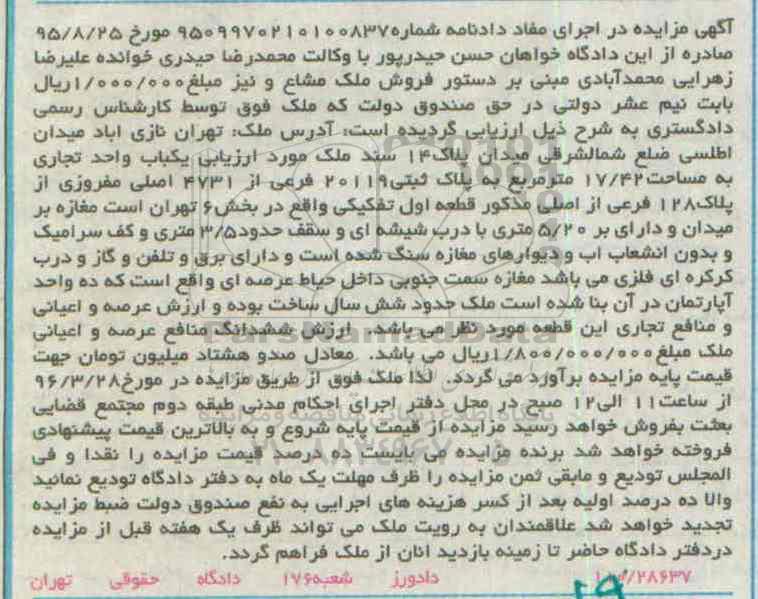 آگهی مزایده در اجرای مفاد دادنامه شماره۹۵۰۹۹۷۰۲۱۰۱۰۰۸۳۷ مورخ ۹۵/۸/۲۵
صادره از این دادگاه خواهان حسن حیدرپور با وکالت محمدرضا حیدری خوانده علیرضا
زهرایی محمدآبادی مبنی بر دستور فروش ملک مشاع و نیز مبلغ۱/۰۰۰/۰۰۰ریال
بابت نیم عشر دولتی در حق صندوق دولت که ملک فوق توسط کارشناس رسمی
دادگستری به شرح ذیل ارزیابی گردیده است: آدرس ملک: تهران نازی اباد میدان
اطلسی ضلع شمالشرقی میدان پلاک۱۴ سند ملک مورد ارزیابی یکباب واحد تجاری
به مساحت۱۷/۴۲ مترمربع به پلاک ثبتی۲۰۱۱۹ فرعی از ۴۷۳۱ اصلی مفروزی از
پلاک۱۲۸ فرعی از اصلی مذکور قطعه اول تفکیکی واقع در بخش۶ تهران است مغازه بر
میدان و دارای بر ۵/۲۰ متری با درب شیشه ای و سقف حدود۳/۵ متری و کف سرامیک
و بدون انشعاب اب و دیوارهای مغازه سنگ شده است و دارای برق و تلفن و گاز و درب
کرکره ای فلزی می باشد مغازه سمت جنوبی داخل حیاط عرصه ای واقع است که ده واحد
آپارتمان در آن بنا شده است ملک حدود شش سال ساخت بوده و ارزش عرصه و اعیانی
و منافع تجاری این قطعه مورد نظر می باشد. ارزش ششدانگ منافع عرصه و اعیانی
ملک مبلغ۱/۸۰۰/۰۰۰/۰۰۰ریال می باشد. معادل صدو هشتاد میلیون تومان جهت
قیمت پایه مزایده برآورد می گردد. لذا ملک فوق از طریق مزایده در مورخ۹۶/۳/۲۸
از ساعت۱۱ الی۱۲ صبح در محل دفتر اجرای احکام مدنی طبقه دوم مجتمع قضایی
بعثت بفروش خواهد رسید مزایده از قیمت پایه شروع و به بالاترین قیمت پیشنهادی
فروخته خواهد شد برنده مزایده می بایست ده درصد قیمت مزایده را نقدا و فی
المجلس تودیع و مابقی ثمن مزایده را ظرف مهلت یک ماه به دفتر دادگاه تودیع نمائید
والا ده درصد اولیه بعد از کسر هزینه های اجرایی به نفع صندوق دولت ضبط مزایده
تجدید خواهد شد علاقمندان به رویت ملک می تواند ظرف یک هفته قبل از مزایده
دردفتر دادگاه حاضر تا زمینه بازدید انان از ملک فراهم گردد.
دادورز شعبه۱۷۶ دادگاه حقوقی تهران